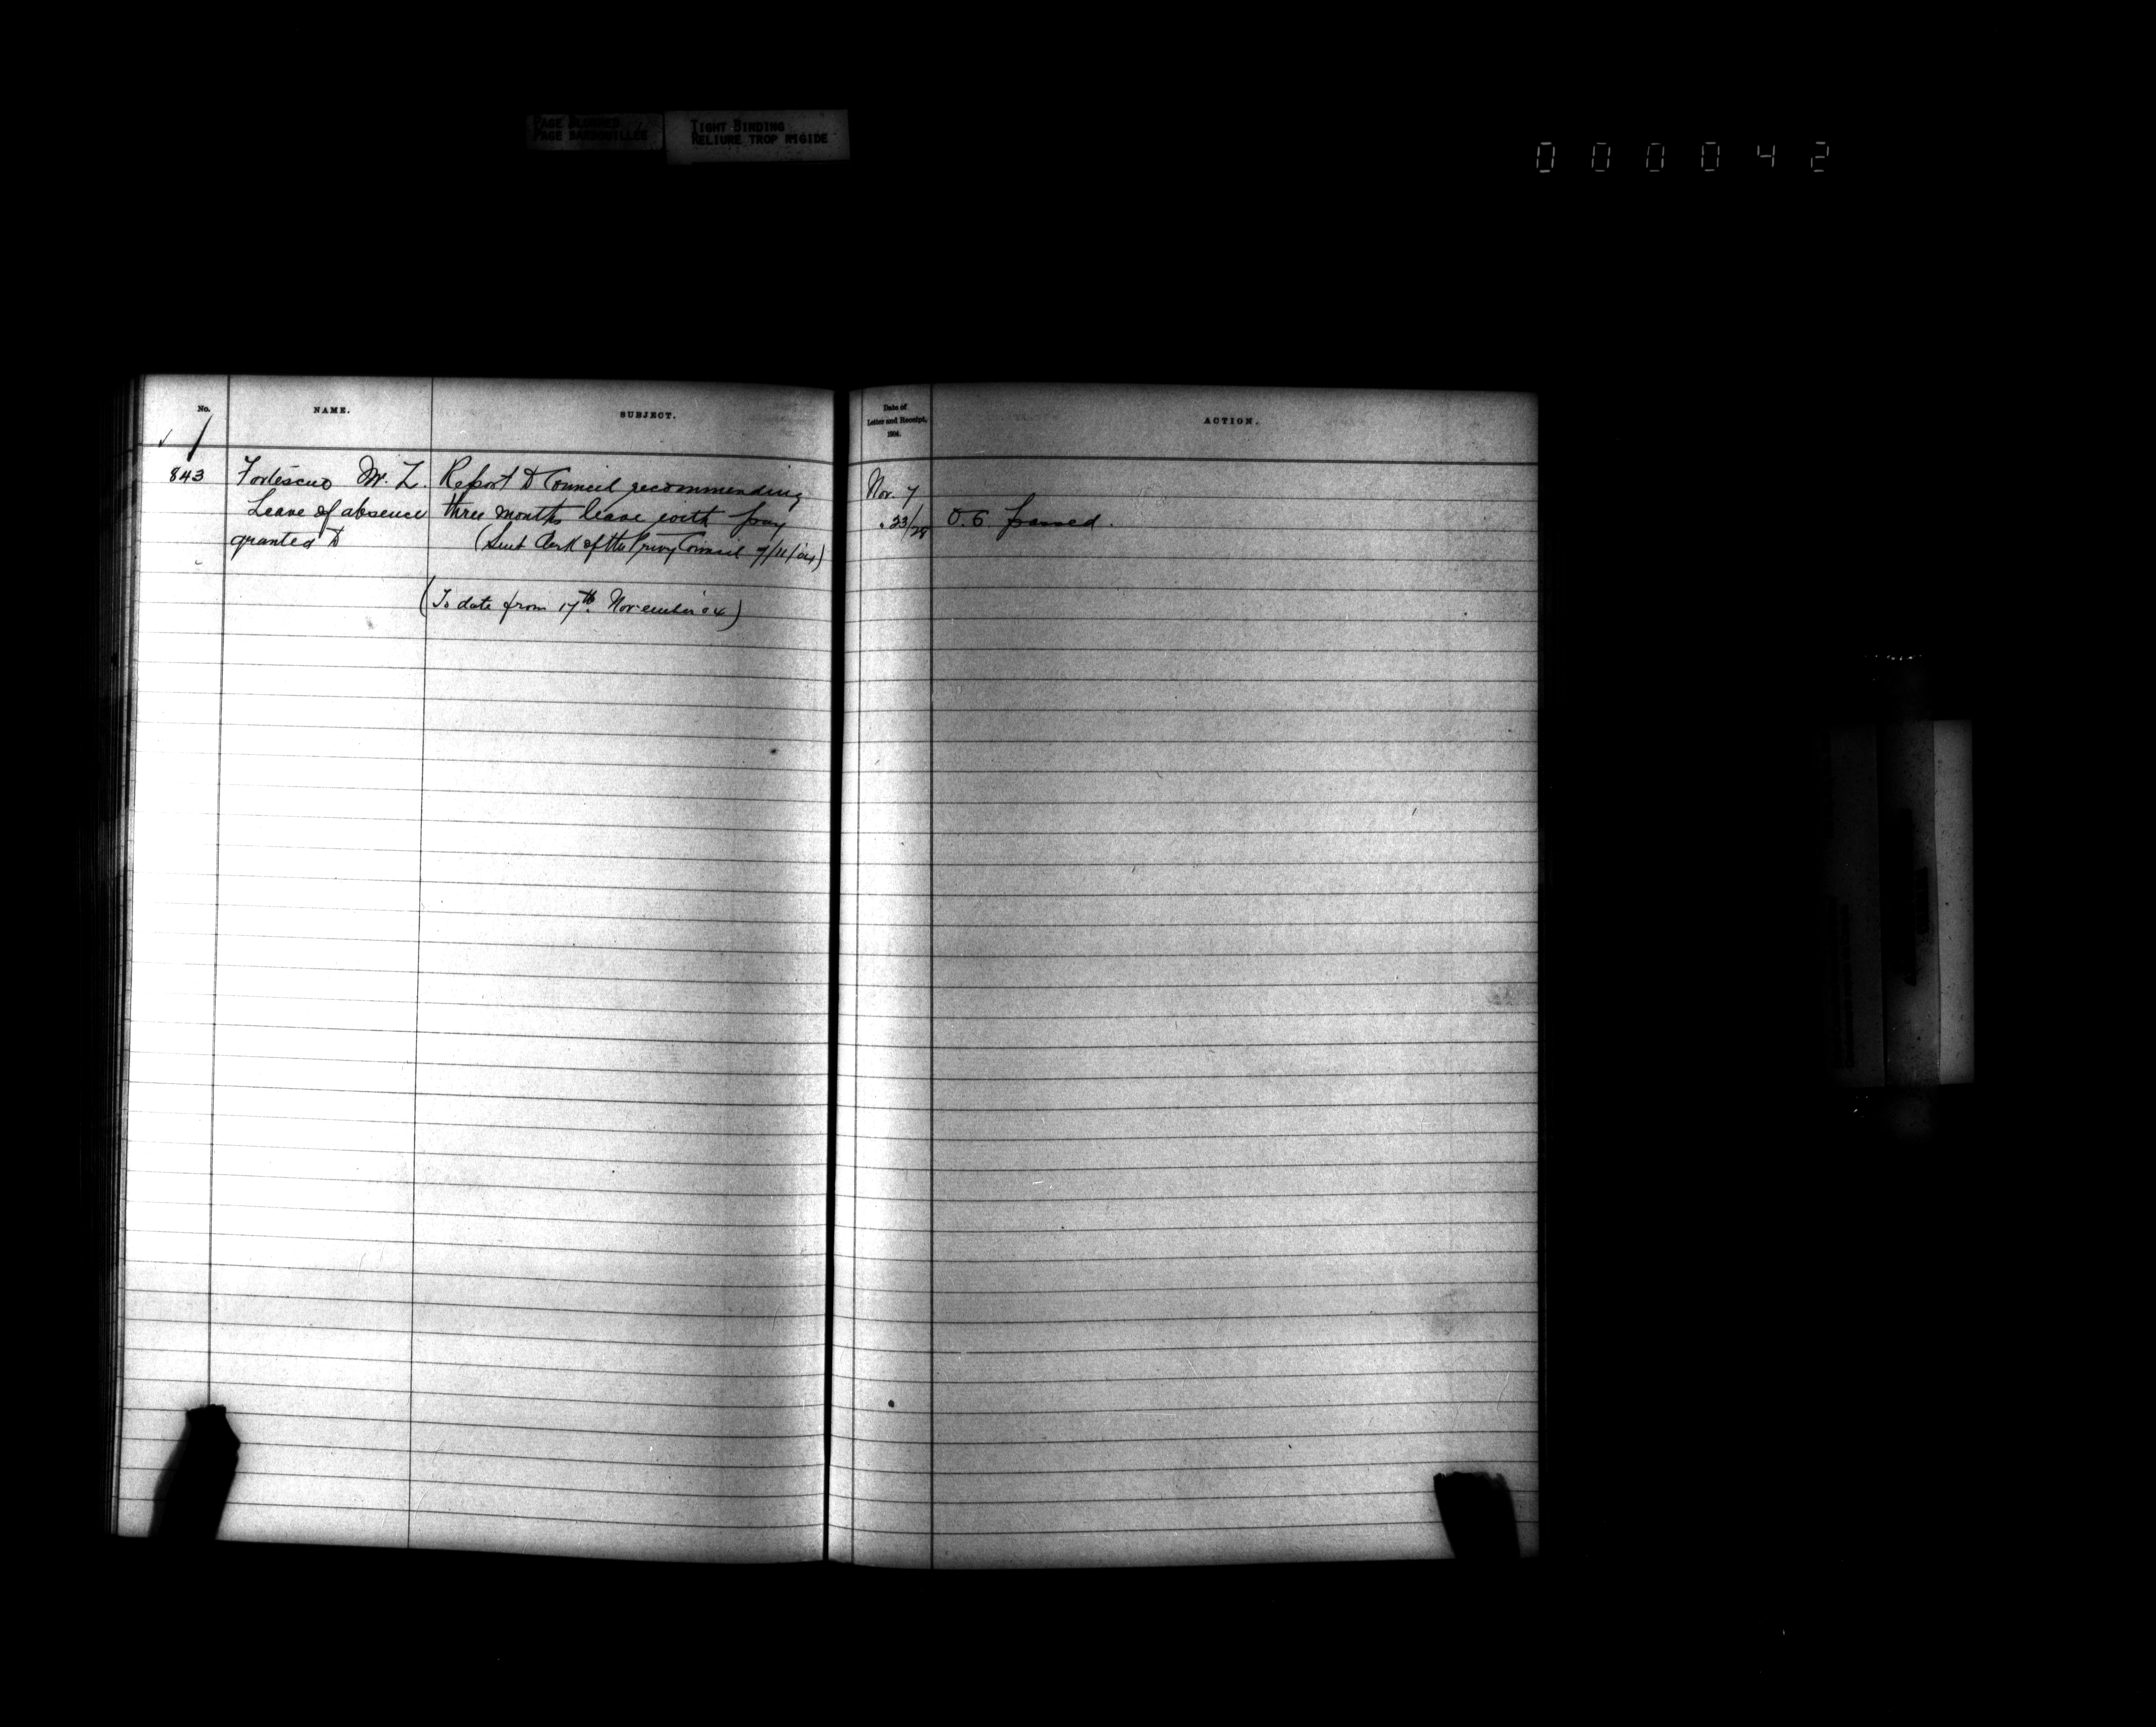 PAGE BLURRED
PAGE BARBOUILLÉE
TIGHT BINDING
RELIURE TROP RIGIDE
000042
No.
NAME.
SUBJECT.
Date of
Letter and Receipt,
1904.
ACTION.
843 Fortescue M. Z. Report to Council recommending Nov. 7
Leave of absence three months leave with pay " 23/28 O. C. passed.
granted to (Sent Clerk of the Privy Council 7/11/04)
(To date from 17th November 04)